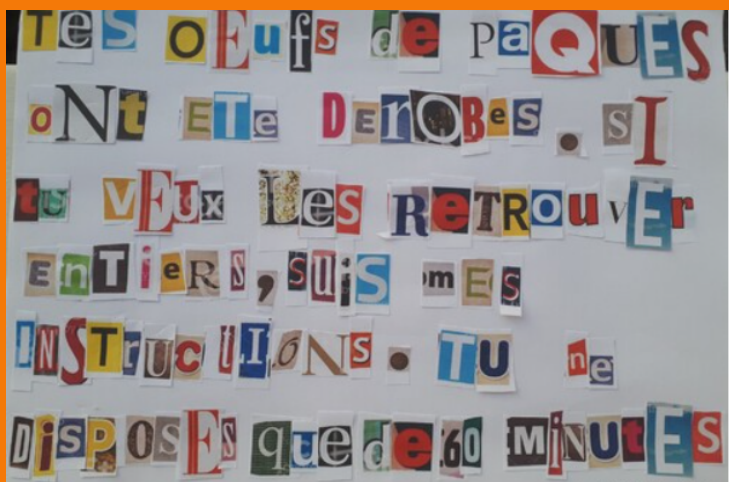 TeS OEufs de PaQUES
oNt ETe DeROBes. SI
tu VEux Les ReTROuvEr
EnTieRS, suis mES
INSTrucTIONS. TU ne
DiSPOSEs que de 60 MiNutES